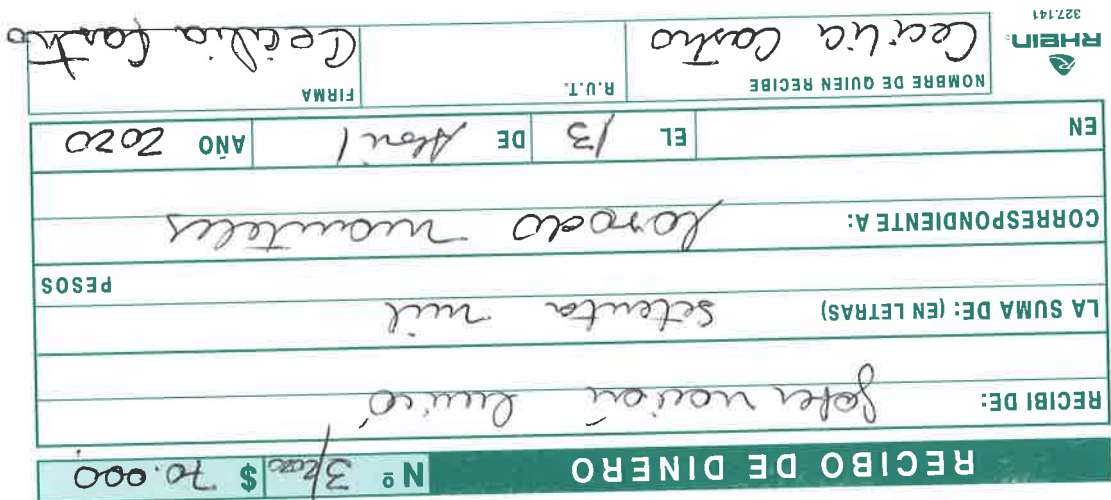 RECIBO DE DINERO Nº 3/2020 $ 70.000
RECIBI DE: Gobernación Limarí
LA SUMA DE: (EN LETRAS) setenta mil
PESOS
CORRESPONDIENTE A: Lavado manteles
EN EL 13 DE Abril AÑO 2020
NOMBRE DE QUIEN RECIBE R.U.T. FIRMA
Cecilia Castro Cecilia Castro
RHEIN
327.141